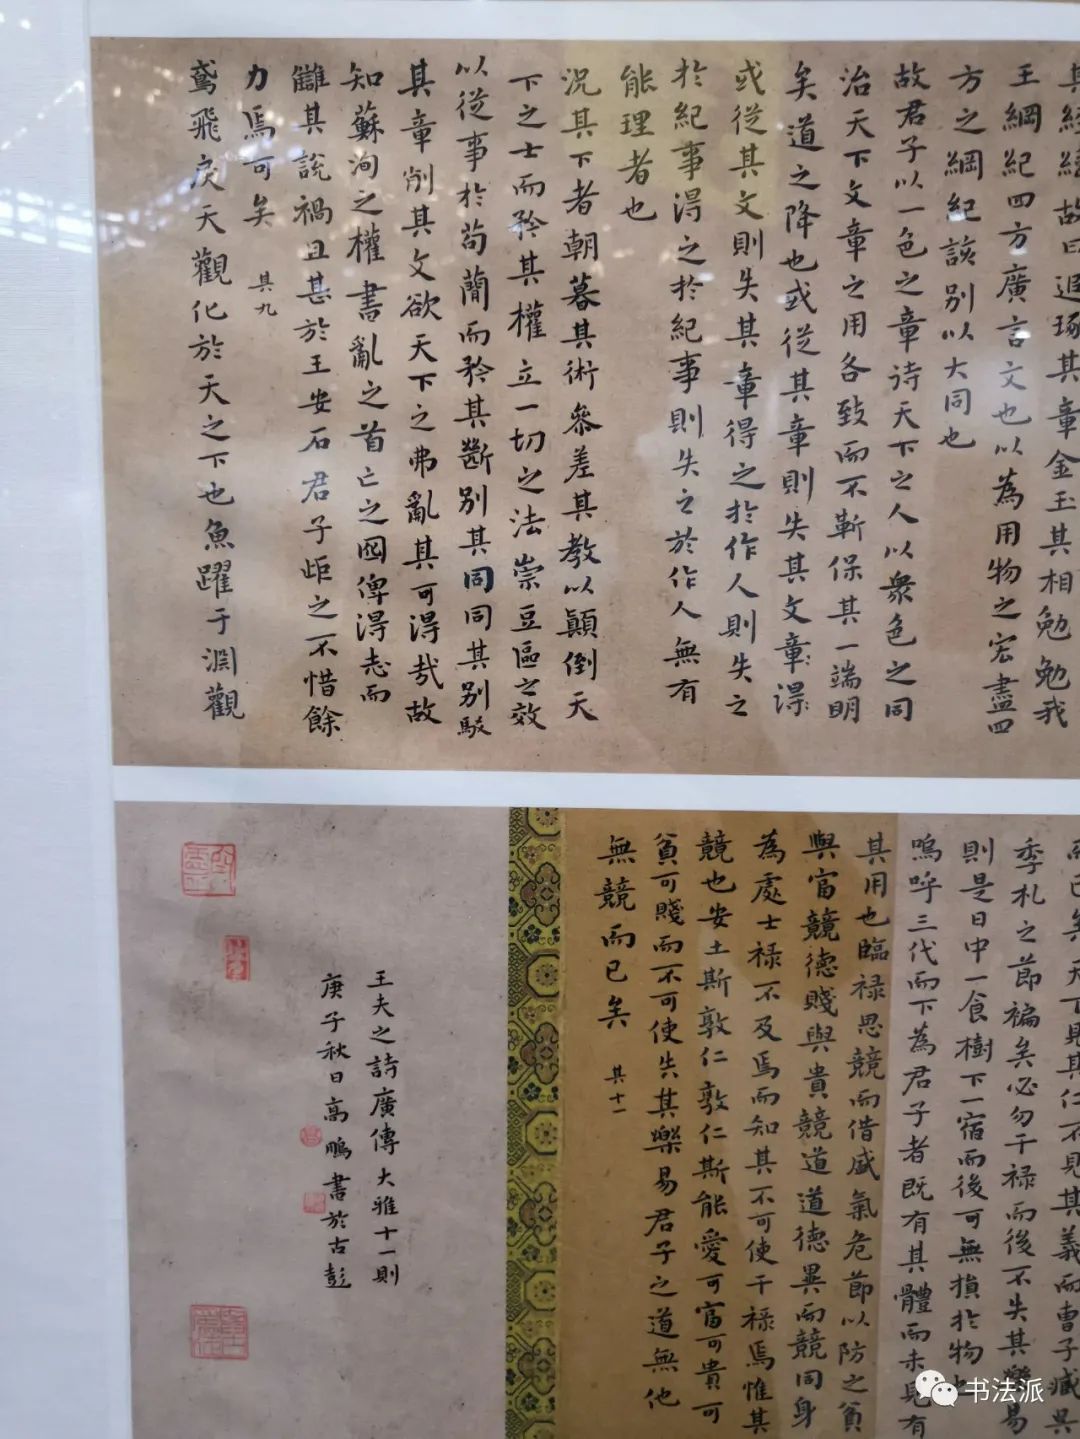 其經緯故曰追琢其章金玉其相勉勉我
王綱紀四方廣言文也以為用物之宏盡四
方之綱紀該別以大同也
故君子以一色之章待天下之人以衆色之同
治天下文章之用各致而不蘄保其一端明
矣道之降也或從其章則失其文章得
或從其文則失其章得之於作人則失之
於紀事得之於紀事則失之於作人無有
能理者也
況其下者朝暮其術參差其教以顛倒天
下之士而矜其權立一切之法崇豆區之效
以從事於苟簡而矜其斷別其同同其別駁
其章削其文欲天下之弗亂其可得哉故
知蘇洵之權書亂之首亡之囮俾得志而
讎其說禍且甚於王安石君子歫之不惜餘
力焉可矣 其九
鳶飛戾天觀化於天之下也魚躍于淵觀
而已矣天下見其仁不見其義而曹子臧吳
季札之節褊矣必勿干祿而後不失其樂易
則是日中一食樹下一宿而後可無損於物也
嗚呼三代而下為君子者既有其體而未見有
其用也臨祿思競而借盛氣危節以防之貧
與富競德賤與貴競道道德異而競同身
為處士祿不及焉而知其不可使干祿焉惟其
競也安土斯敦仁敦仁斯能愛可富可貴可
貧可賤而不可使失其樂易君子之道無他
無競而已矣 其十一
王夫之詩廣傳大雅十一則
庚子秋日高鵬書於古彭
书法派